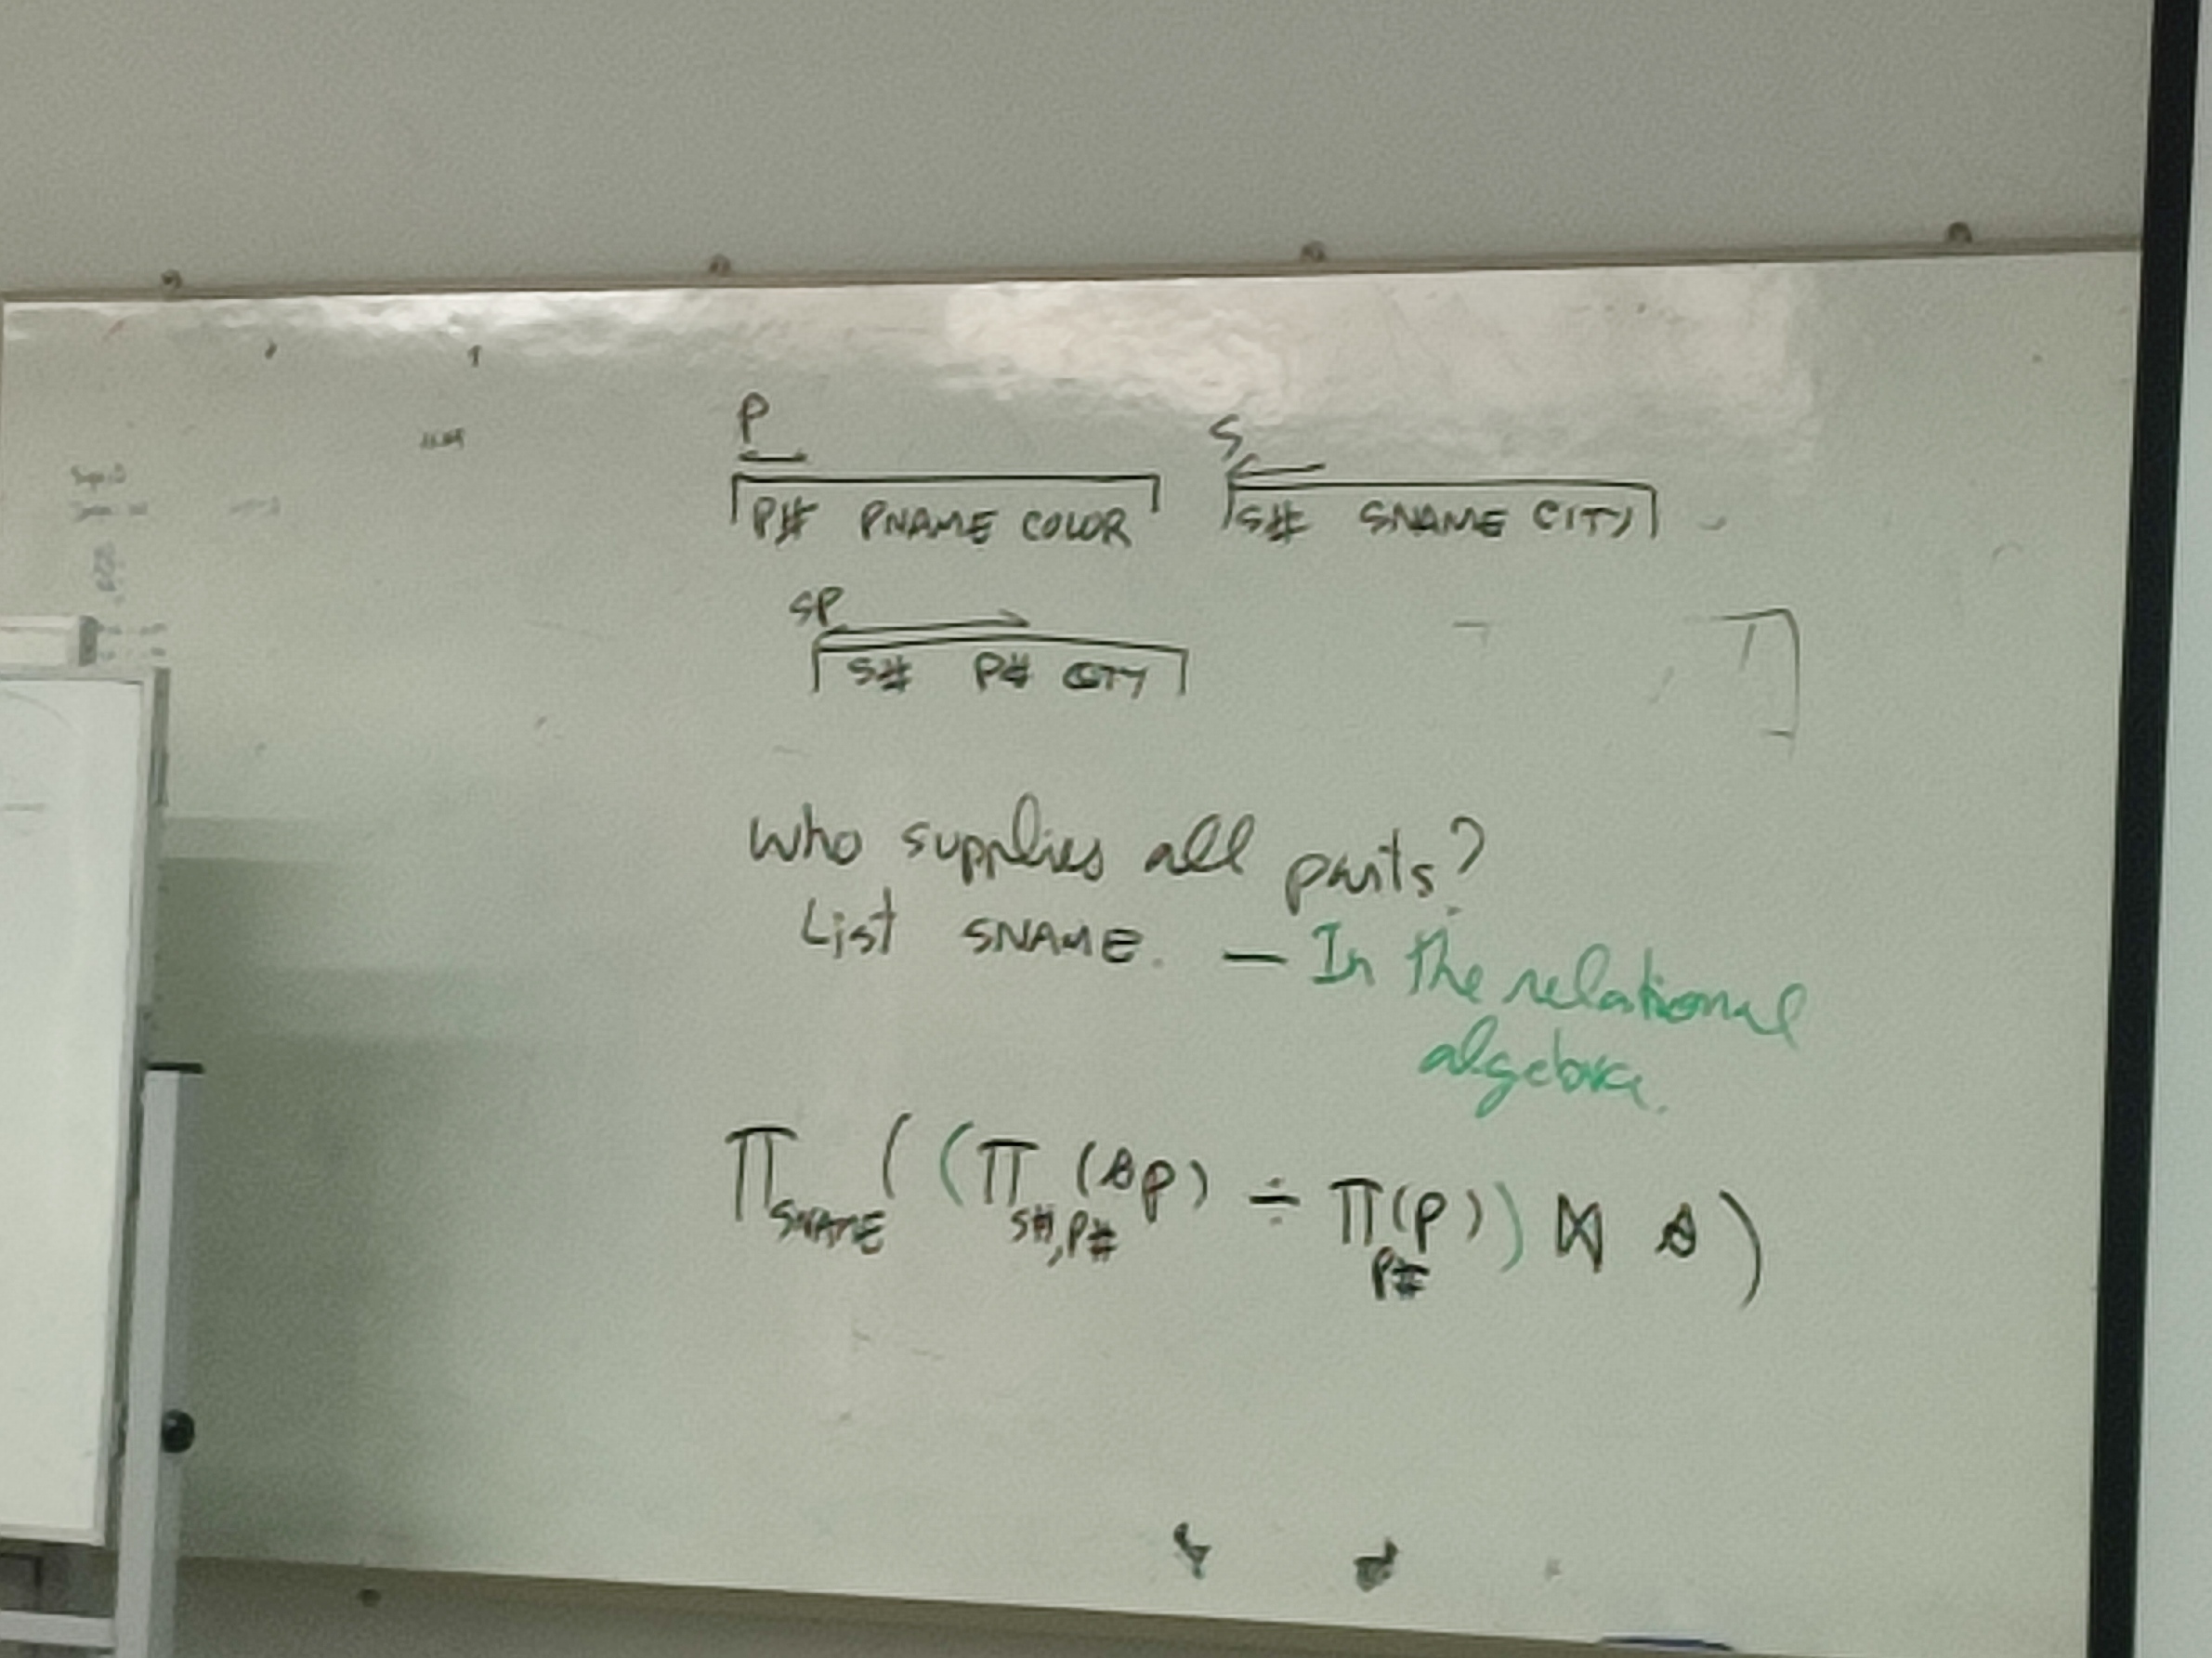 P
S
P# PNAME COLOR
S# SNAME CITY
SP
S# P# QTY
Who supplies all parts?
List SNAME. — In the relational
algebra.
π SNAME ( ( π S#,P# (sp) ÷ π P# (p) ) ⋈ s )